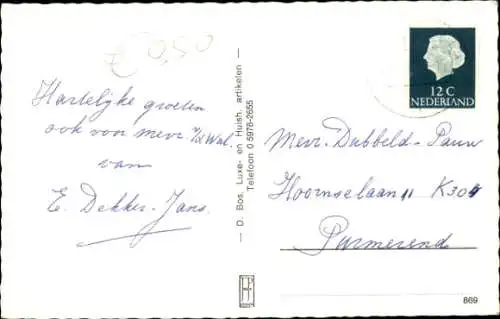 € 0,50
Hartelijke groeten
ook voor mevr. v/d Wal.
van
E. Dekker-Jans
— D. Bos, Luxe- en Huish. artikelen —
Telefoon 0 5978-2655
12 C
NEDERLAND
Mevr. Dubbeld-Pauw
Hoornselaan 11 K304
Purmerend
869